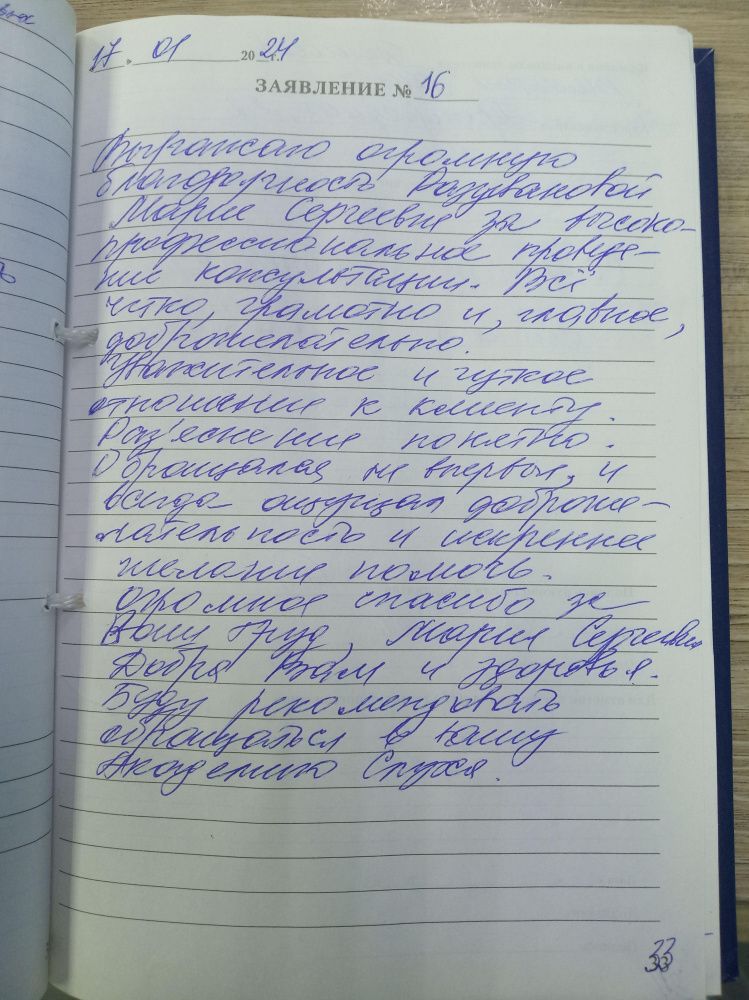 17 . 01 2024 г.
ЗАЯВЛЕНИЕ № 16
Выражаю огромную
благодарность Разувановой
Марие Сергеевне за высоко-
профессиональное проведе-
ние консультации. Всё
чётко, грамотно и, главное,
доброжелательно.
Уважительное и чуткое
отношение к клиенту.
Раз'яснение понятно.
Обращалась не впервые, и
всегда ощущал доброже-
лательность и искреннее
желание помочь.
Огромное спасибо за
Ваш труд, Мария Сергеевна
Добра Вам и здоровья.
Буду рекомендовать
обращаться в вашу
Академию Слуха.
33
33